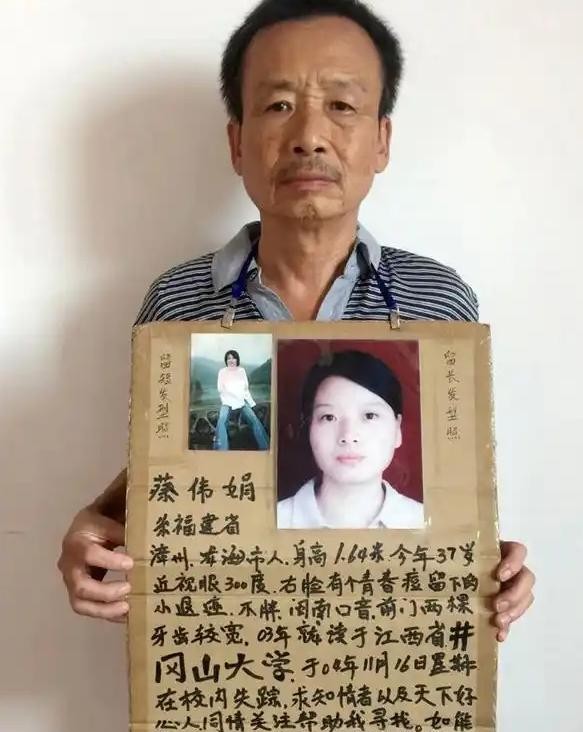 留短发型照
留长发型照
蔡伟娟
福建省
漳州.龙海市人.身高1.64米.今年37岁
近视眼300度.右脸有个青春痘留下的
小退迹.不胖.闽南口音.前门两棵
牙齿较宽.03年就读于江西省井
冈山大学.于04年11月16日
在校内失踪,求知情者以及天下好
心人同情关注帮助我寻找。如能